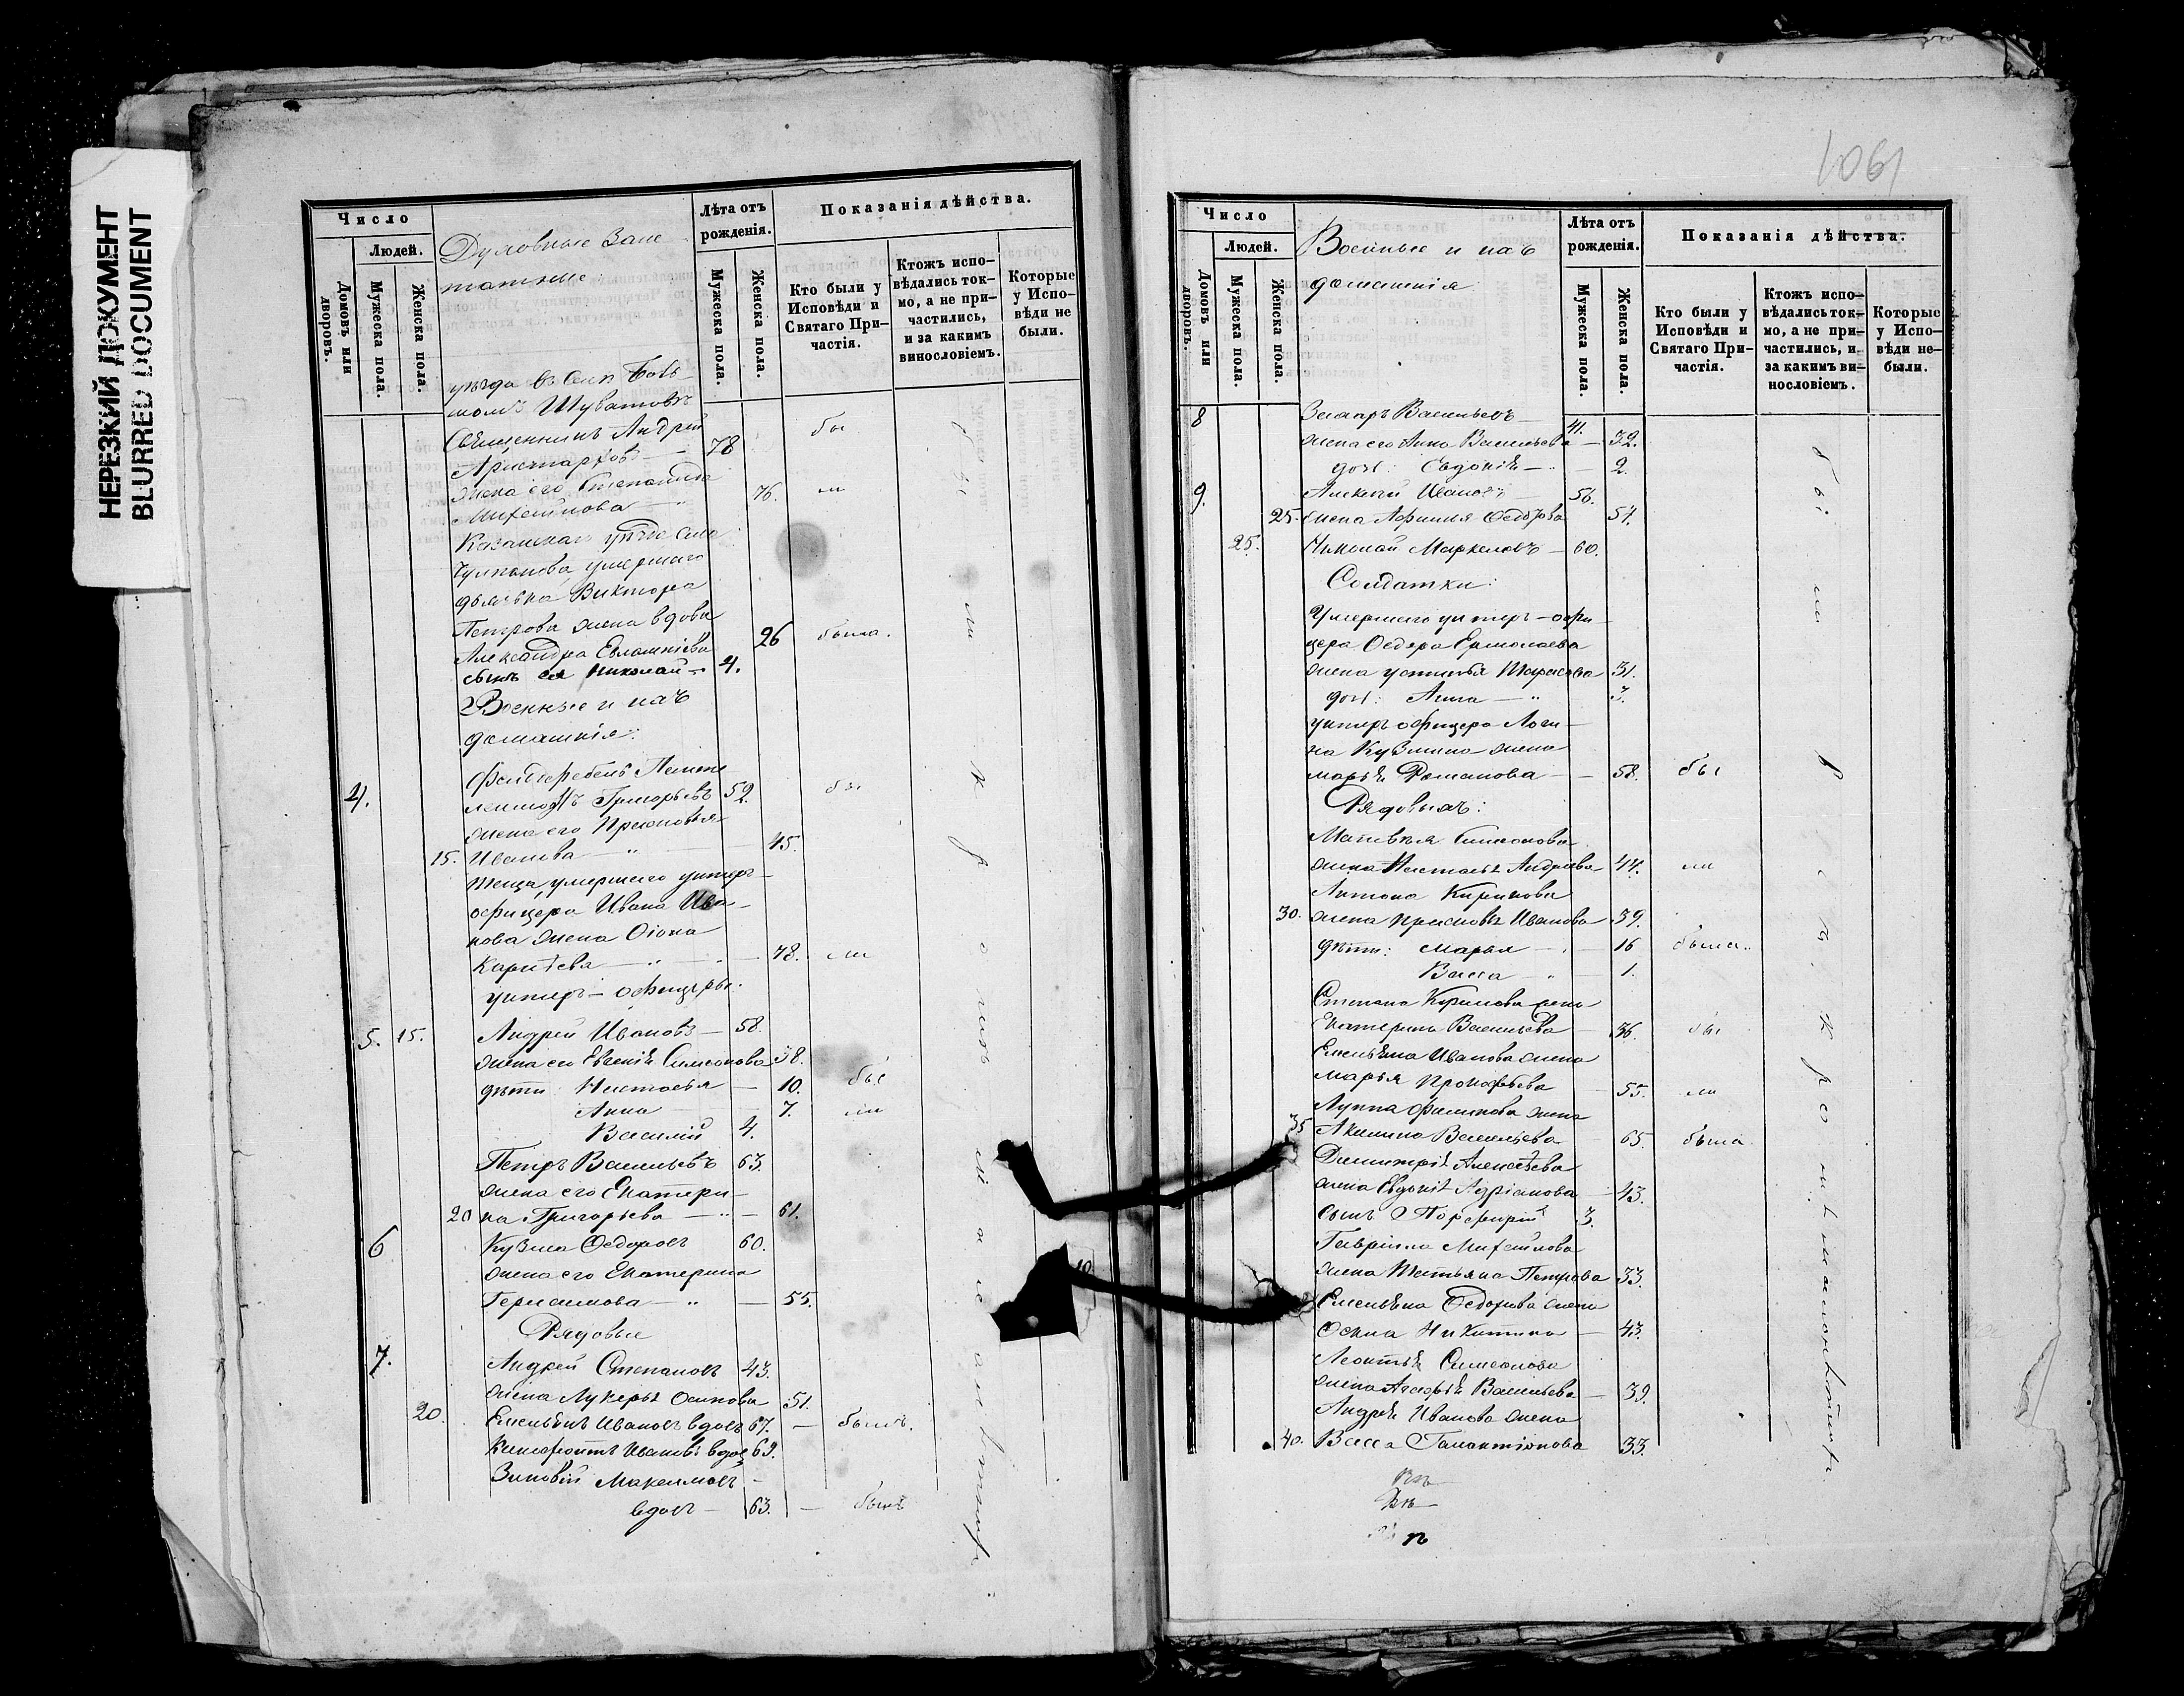 НЕРЕЗКИЙ ДОКУМЕНТ
BLURRED DOCUMENT
Число
Людей.
Домовъ или дворовъ.
Мужеска пола.
Женска пола.
Духовные Заш
татные:
Лѣта отъ рожденія.
Мужеска пола.
Женска пола.
Показанія дѣйства.
Кто были у Исповѣди и Святаго При-
частія.
Ктожъ испо-
вѣдались ток-
мо, а не при-
частились,
и за какимъ
винословіемъ.
Которые
у Испо-
вѣди не
были.
уѣзда въ селѣ Боль
шомъ Шуватовѣ
Священникъ Андрей
Аристарховъ — 78 бы
жена его Степанида
Михайлова — 76. ли
Казанскаго уѣзда села
умершаго
дьячька Виктора
Петрова жена вдова
Александра Евлампіева 26 была.
сынъ ея Николай — 4.
Военные и ихъ
домашнія:
4. Фельдфебель
Григорьевъ 52. бы
жена его Прасковья
15. Иванова — 45.
теща, умершаго унтеръ-
офицера Ивана Ива-
нова жена
78. ли
унтеръ-офицеры.
5. 15. Андрей Ивановъ — 58.
жена его Евгенія Симеонова 38.
дѣти: Настасья — 10. бы
Анна — 7. ли
Василій 4.
Петръ Васильевъ 63.
жена его Екатери-
20 на Григорьева — 61.
6 Кузма Ѳедоровъ 60.
жена его Екатерина
Герасимова — 55.
Рядовые
7. Андрей Степановъ 43.
жена Лукерья Осипова 51.
20. Емельянъ Ивановъ вдовъ 67. — былъ.
Ксенофонтъ Ивановъ вдов 69.
Зиновій Максимовъ -
вдовъ — 63. — былъ
10.
1061
Число
Людей.
Домовъ или дворовъ.
Мужеска пола.
Женска пола.
Военные и ихъ
домашнія:
Лѣта отъ рожденія.
Мужеска пола.
Женска пола.
Показанія дѣйства.
Кто были у
Исповѣди и
Святаго При-
частія.
Ктожъ испо-
вѣдались ток-
мо, а не при-
частились, и
за какимъ ви-
нословіемъ.
Которые
у Испо-
вѣди не-
были.
8 Васильевъ 41.
жена его Анна Васильева — 32.
дочь: Евдокія — 2.
9. Алексѣй Ивановъ 56.
25. жена Афимья Ѳедорова 57.
25. Николай Маркеловъ — 60.
Солдатки:
Умершаго унтеръ-офи-
цера Ѳедора Ермолаева
жена Устинья Тарасова 31.
дочь: Анна — 3.
унтеръ офицера Логи-
на Кузмина жена
марья Романова — 58. бы
Рядовыхъ:
Матвѣя Симонова
жена Настасья Андреева 44. ли
Антона Кирилова
30. жена Прасковья Иванова 39.
дѣти: Марья — 16 была.
Васса — 1.
Степана Кирилова жена
Екатерина Васильева — 36. бы
Емельяна Иванова жена
марья Прокофьева 55. ли
Луппа Филипова жена
35 Акилина Васильева 65 была
Димитрія Алексѣева
жена Евдокія Адріанова — 43.
сынъ Порфирій 3.
Гавріила Михайлова
жена Татьяна Петрова 33.
Емельяна Ѳедорова жена
Никитина — 43.
Леонтья Симеонова
жена Васильева — 39.
Андрея Иванова жена
40. Васса Галактіонова 33.